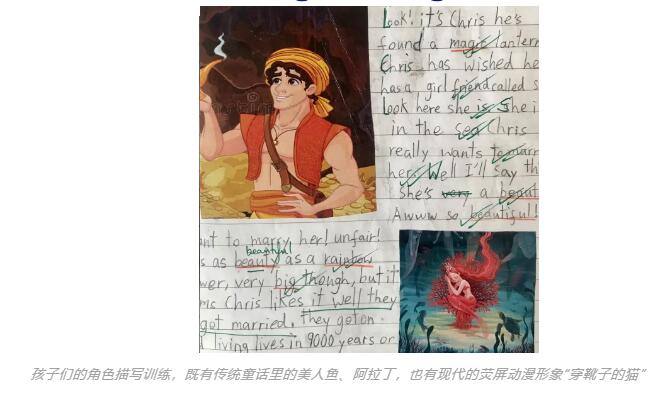 look! it's Chris he's
found a magic lantern
Chris has wished he
has a girl friend called s
look here she is. She i
in the sea Chris
really wants to marr
her. Well I'll say th
She's very a beaut
Awww so beautiful!
nt to marry her! unfair!
beautiful
s as beauty as a rainbow
wer, very big though, but it
ms Chris likes it well they
got married. they got on
living lives in 9000 years or
孩子们的角色描写训练，既有传统童话里的美人鱼、阿拉丁，也有现代的荧屏动漫形象“穿靴子的猫”